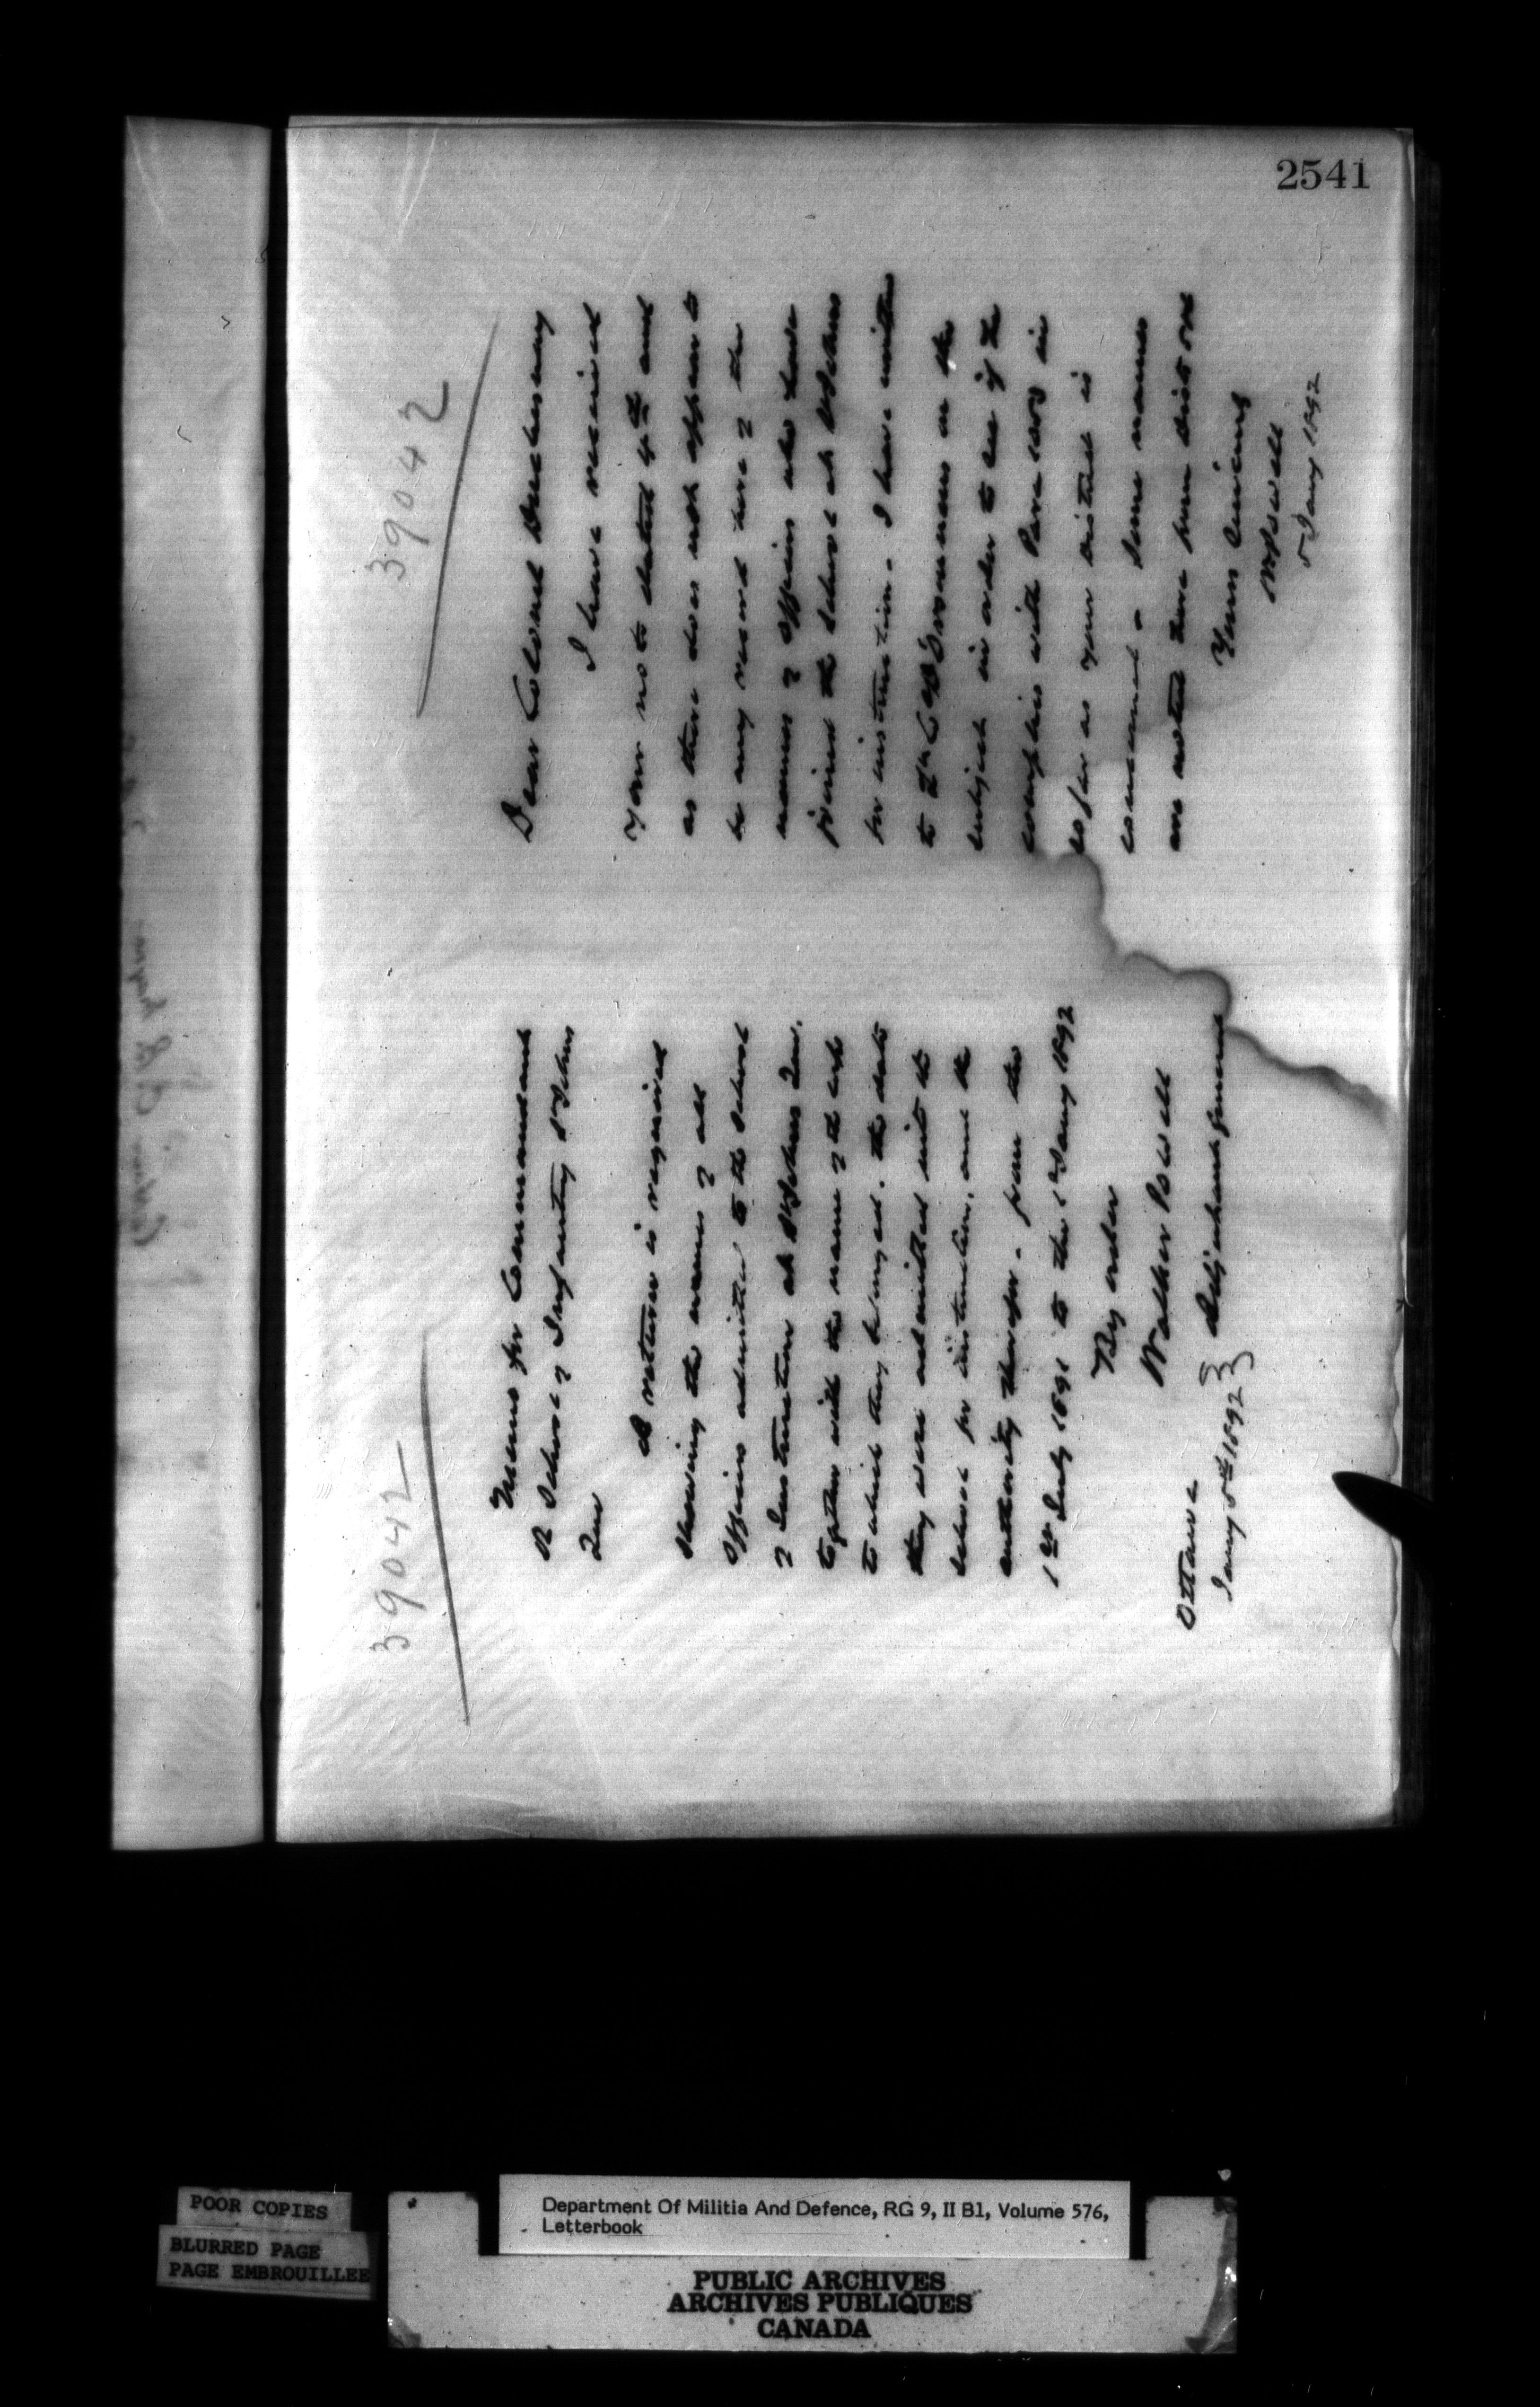 2541
39042
Memo for Commandant
R School of Infantry St Johns
Que
A return is required
showing the names of all
Officers admitted to the School
of Instruction at St Johns Que.
together with the name of the corps
to which they belonged. the date
they were admitted into the
School for instruction, and the
authority therefor - from the
1st July 1891 to the 1st Jany 1892
By order
Walker Powell
Adjutant General
Ottawa
Jany 5th 1892
39042
Dear Colonel Duchesnay
I have received
your note dated 4th and
as there does not appear to
be any record here of the
names of Officers who have
joined the School at St Johns
for instruction - I have written
to Lt Col
subject in order to see if he
complies with Para 1003 in
so far as your District is
concerned - Some names
are noted here from District
Yours Sincerely
W Powell
5 Jany 1892
POOR COPIES
BLURRED PAGE
PAGE EMBROUILLEE
Department Of Militia And Defence, RG 9, II B1, Volume 576,
Letterbook
PUBLIC ARCHIVES
ARCHIVES PUBLIQUES
CANADA